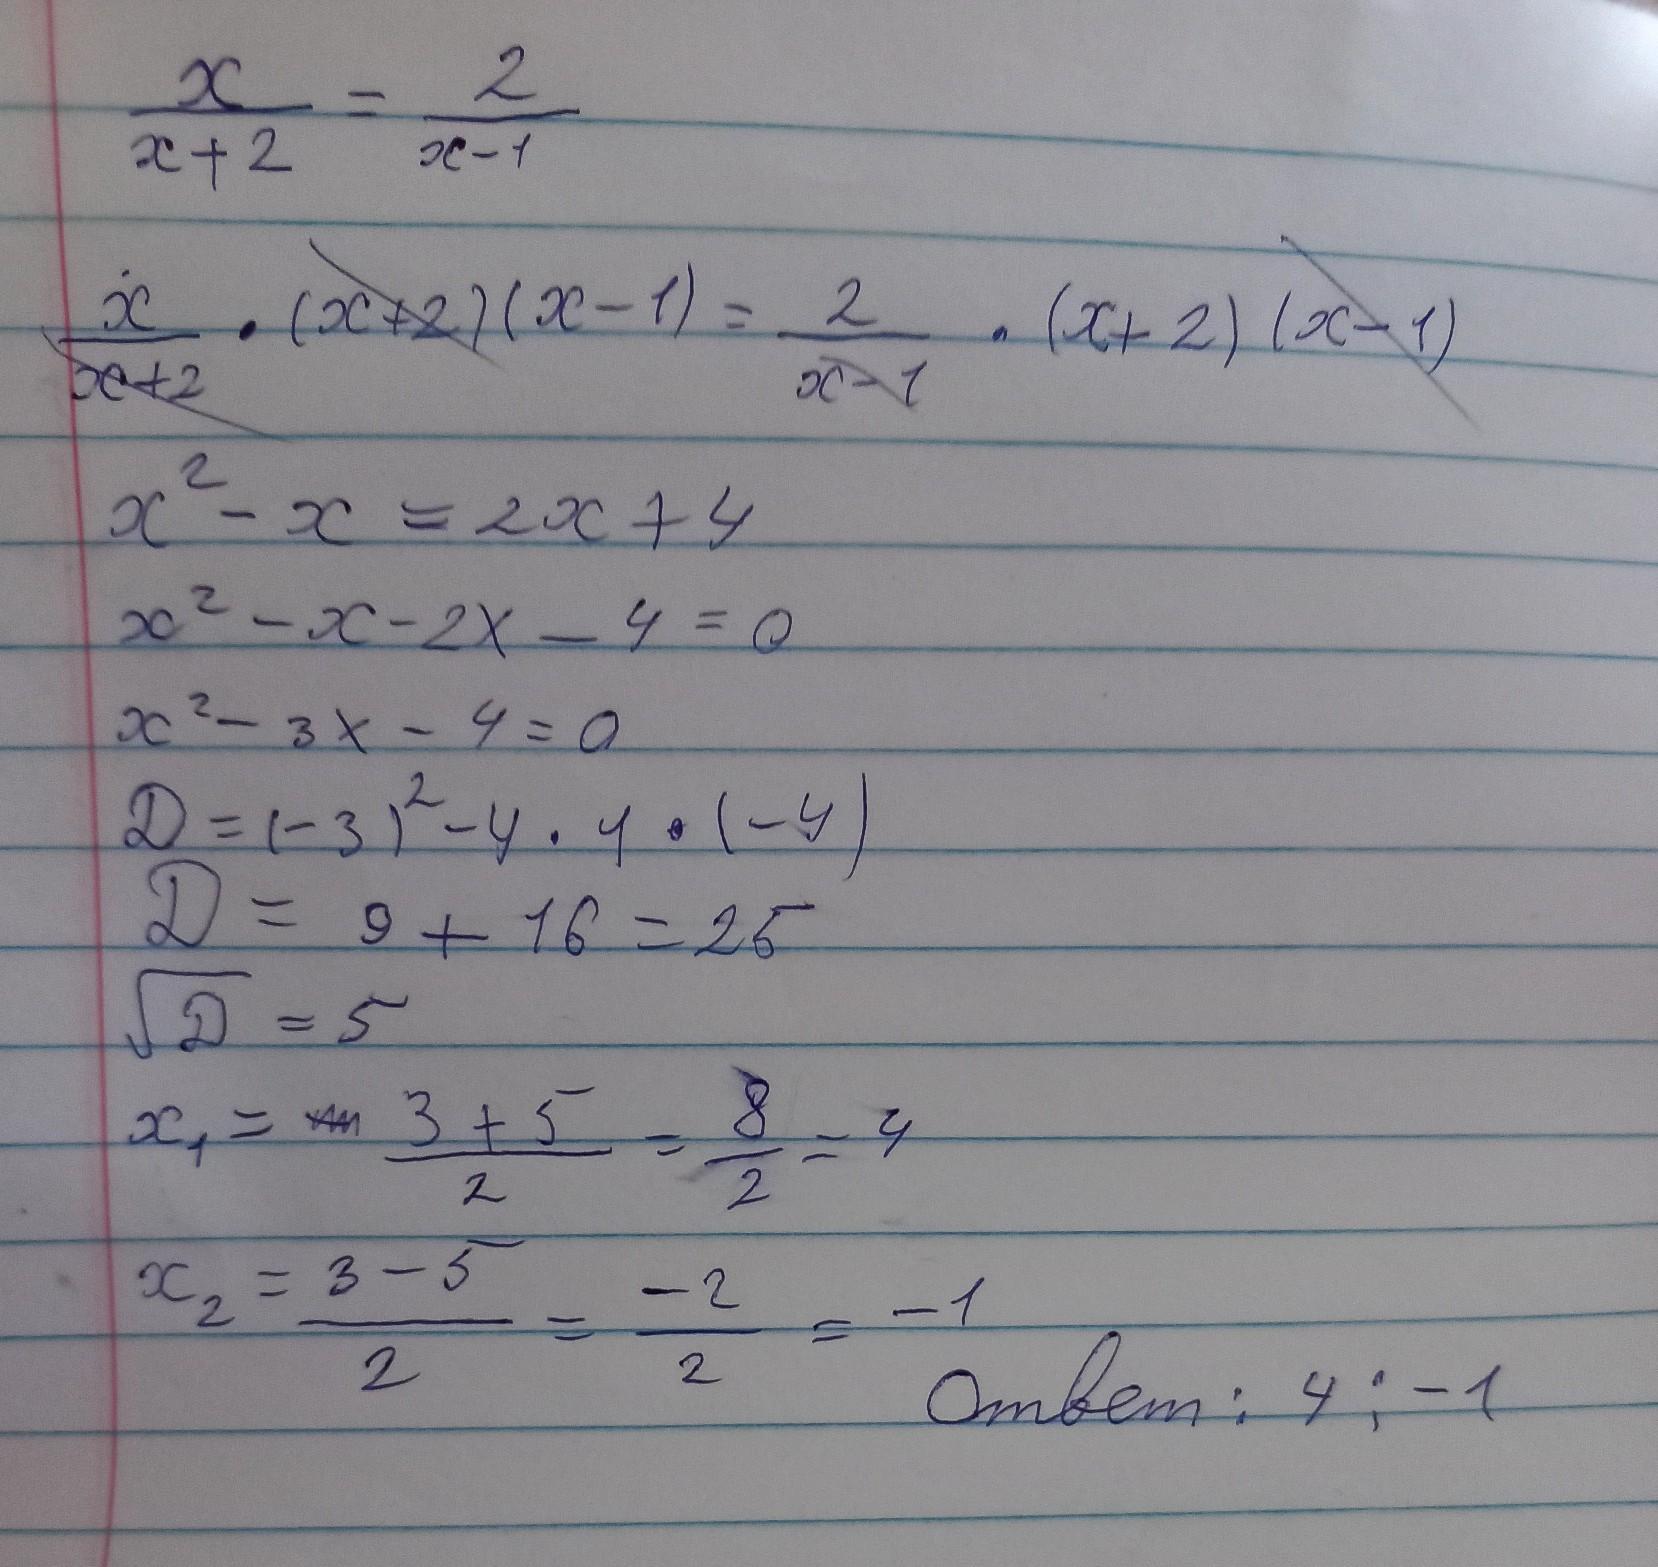 x/(x+2) = 2/(x-1)
x/(x+2) · (x+2)(x-1) = 2/(x-1) · (x+2)(x-1)
x² - x = 2x + 4
x² - x - 2x - 4 = 0
x² - 3x - 4 = 0
D = (-3)² - 4 · 1 · (-4)
D = 9 + 16 = 25
√D = 5
x₁ = (3 + 5)/2 = 8/2 = 4
x₂ = (3 - 5)/2 = -2/2 = -1
Ответ: 4; -1